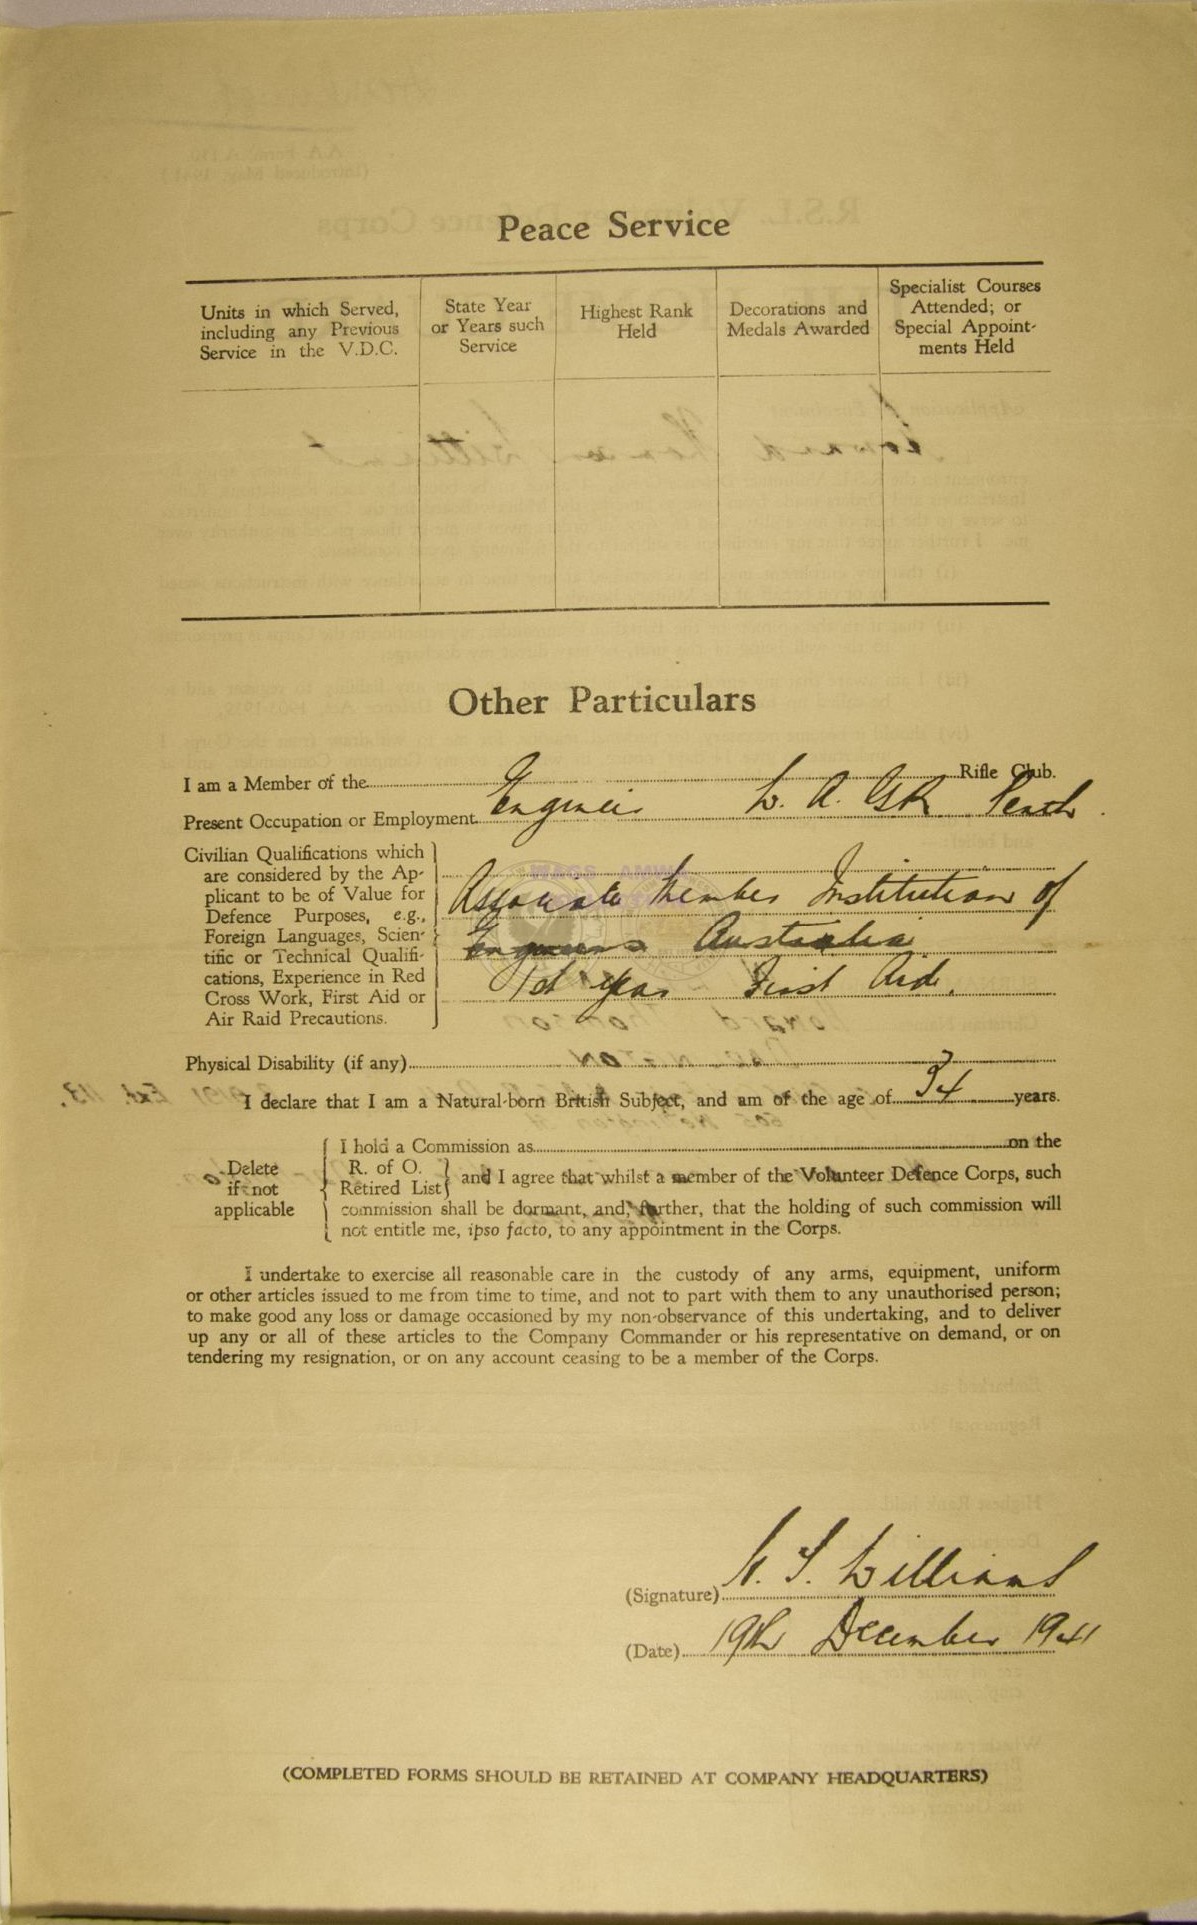 Peace Service
Units in which Served, including any Previous Service in the V.D.C.
State Year or Years such Service
Highest Rank Held
Decorations and Medals Awarded
Specialist Courses Attended; or Special Appoint-ments Held
Other Particulars
I am a Member of the Rifle Club.
Present Occupation or Employment Engineer W. A. G. R. Perth
Civilian Qualifications which
are considered by the Ap-
plicant to be of Value for
Defence Purposes, e.g.,
Foreign Languages, Scien-
tific or Technical Qualifi-
cations, Experience in Red
Cross Work, First Aid or
Air Raid Precautions.
Associate Member Institution of
Engineers Australia
1st year First Aid.
Physical Disability (if any)
I declare that I am a Natural-born British Subject, and am of the age of 34 years.
Delete
if not
applicable
I hold a Commission as on the
R. of O.
Retired List
and I agree that whilst a member of the Volunteer Defence Corps, such
commission shall be dormant, and, further, that the holding of such commission will
not entitle me, ipso facto, to any appointment in the Corps.
I undertake to exercise all reasonable care in the custody of any arms, equipment, uniform
or other articles issued to me from time to time, and not to part with them to any unauthorised person;
to make good any loss or damage occasioned by my non-observance of this undertaking, and to deliver
up any or all of these articles to the Company Commander or his representative on demand, or on
tendering my resignation, or on any account ceasing to be a member of the Corps.
(Signature) H. T. Williams
(Date) 19th December 1941
(COMPLETED FORMS SHOULD BE RETAINED AT COMPANY HEADQUARTERS)